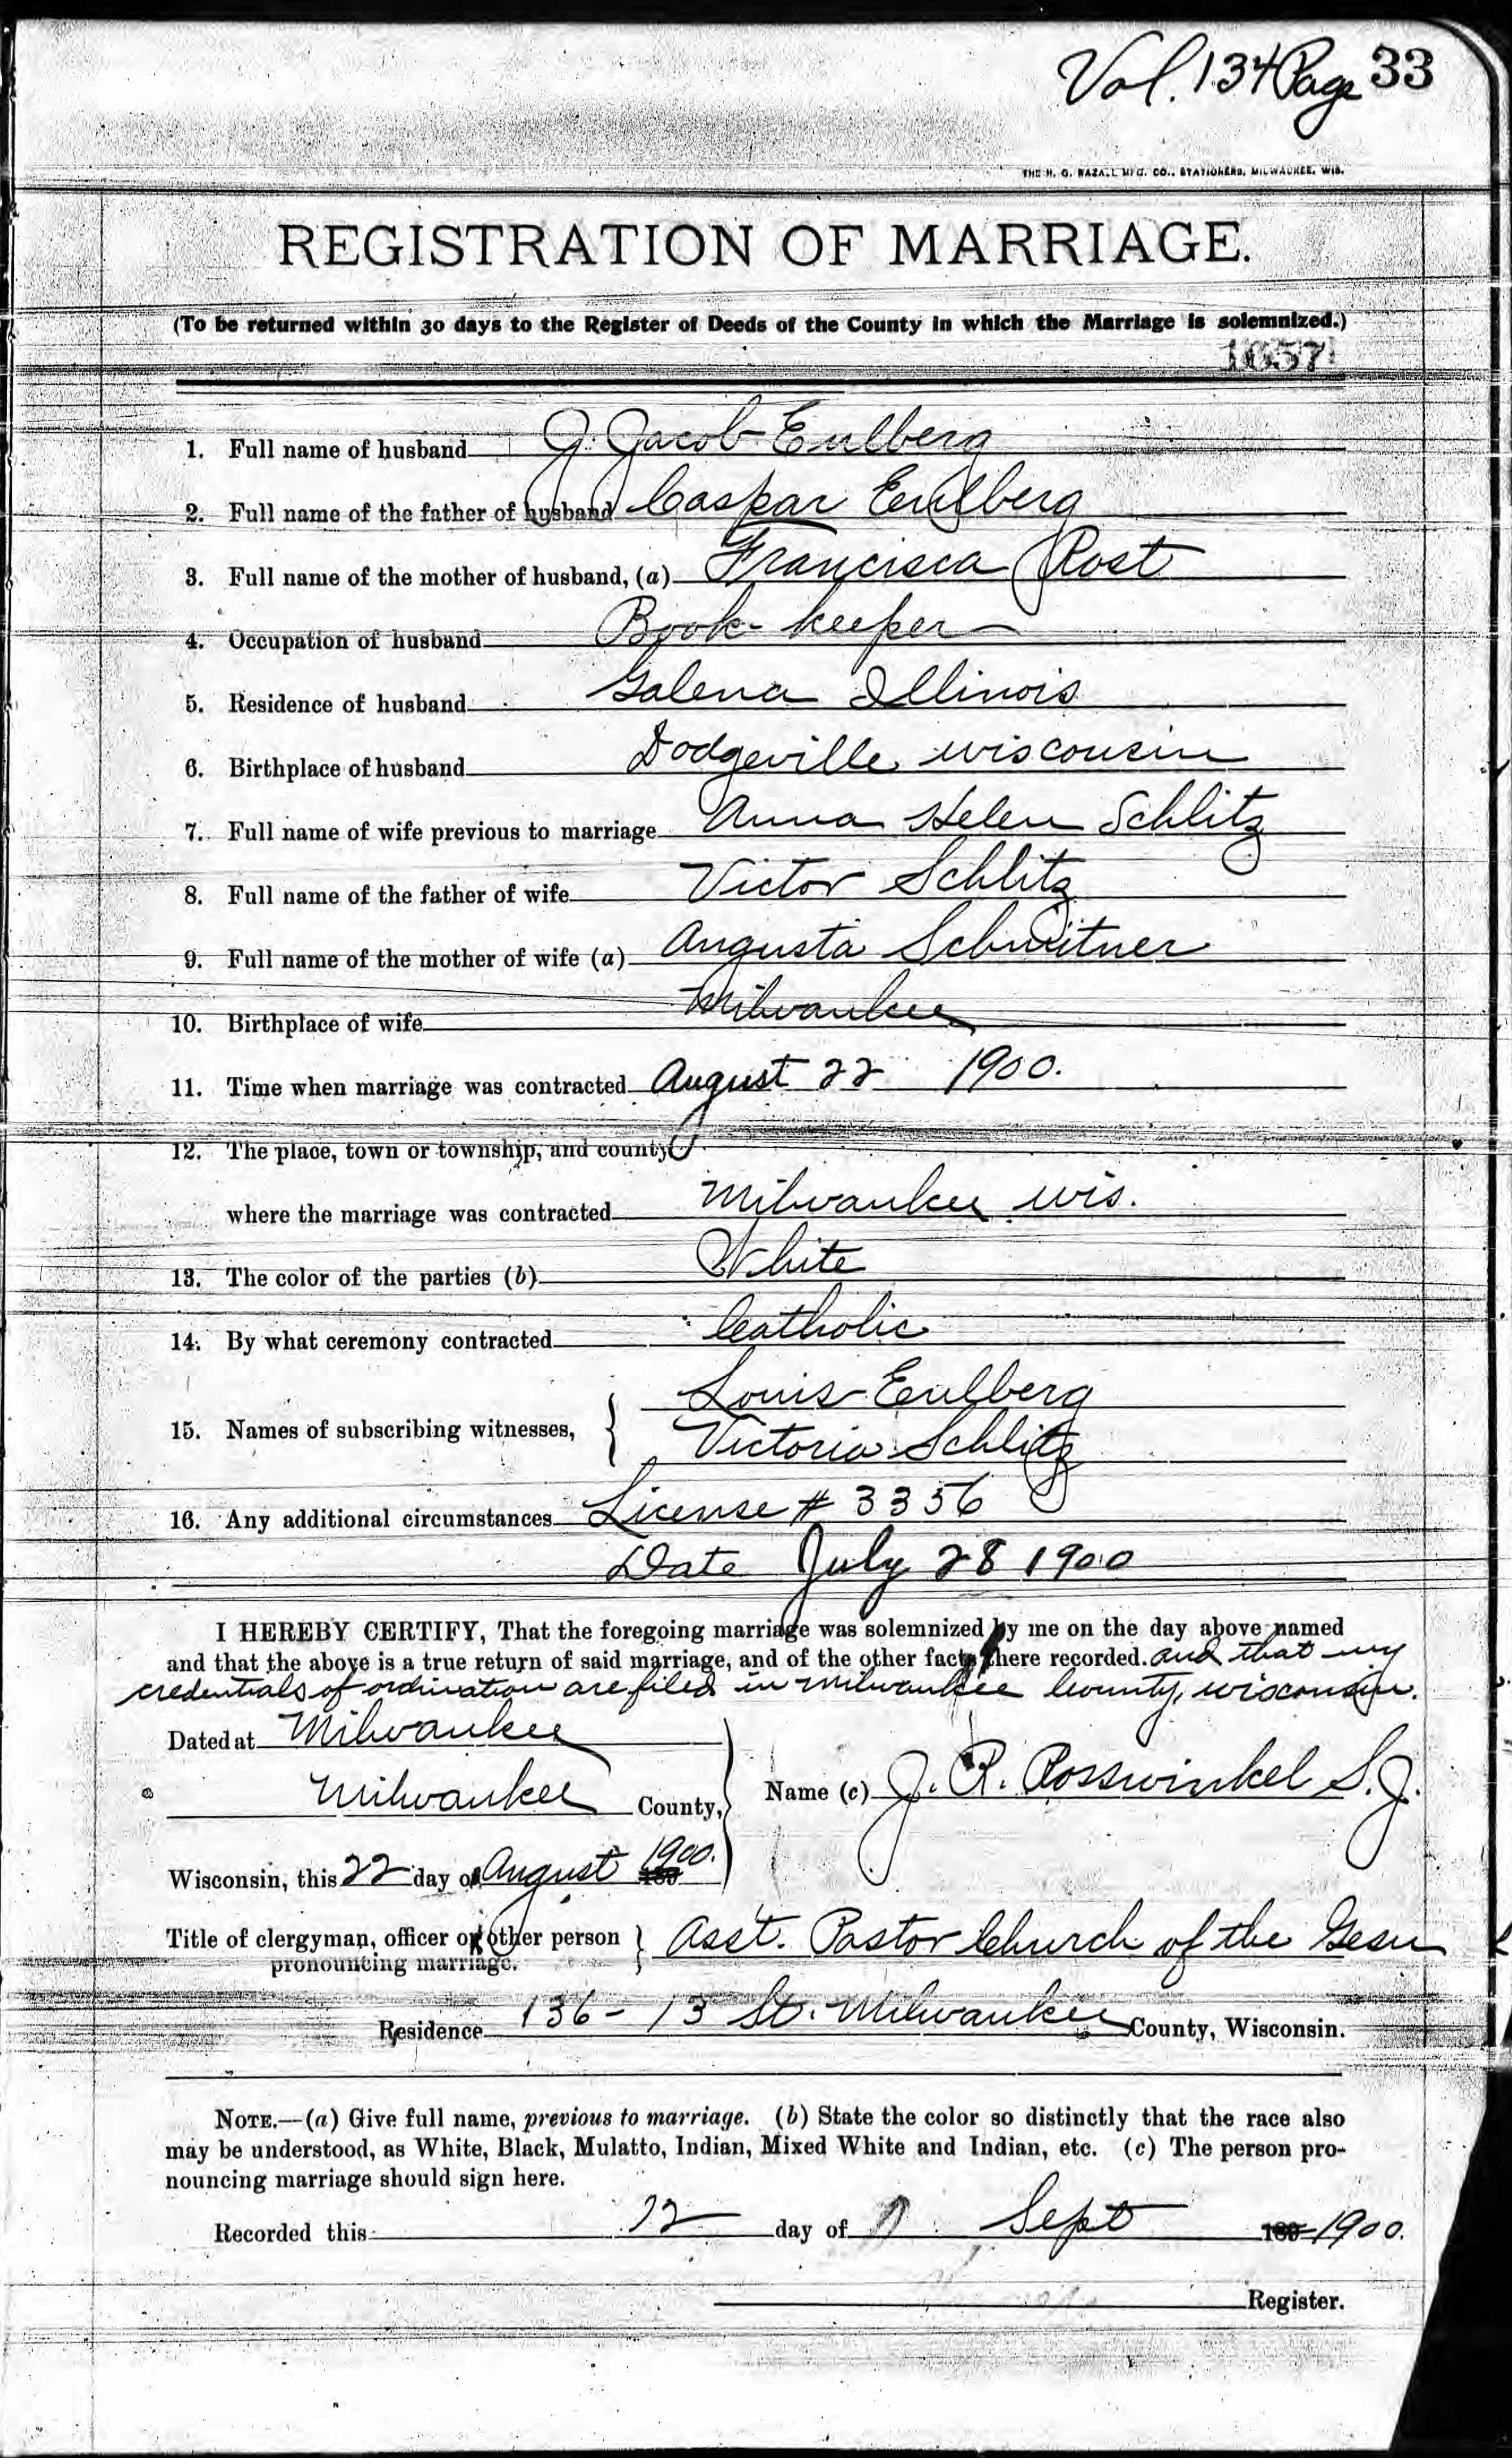 Vol. 134 Page 33
THE H. G. RAZALL MFG. CO., STATIONERS, MILWAUKEE, WIS.
REGISTRATION OF MARRIAGE.
(To be returned within 30 days to the Register of Deeds of the County in which the Marriage is solemnized.)
1657
1. Full name of husband J. Jacob Eulberg
2. Full name of the father of husband Caspar Eulberg
3. Full name of the mother of husband, (a) Francisca Rost
4. Occupation of husband Book-keeper
5. Residence of husband Galena Illinois
6. Birthplace of husband Dodgeville wisconsin
7. Full name of wife previous to marriage Anna Helen Schlitz
8. Full name of the father of wife Victor Schlitz
9. Full name of the mother of wife (a) Augusta
10. Birthplace of wife Milwaukee
11. Time when marriage was contracted August 22 1900.
12. The place, town or township, and county
where the marriage was contracted Milwaukee wis.
13. The color of the parties (b) White
14. By what ceremony contracted Catholic
Louis Eulberg
15. Names of subscribing witnesses, Victoria Schlitz
16. Any additional circumstances License # 3356
Date July 28 1900
I HEREBY CERTIFY, That the foregoing marriage was solemnized by me on the day above named
and that the above is a true return of said marriage, and of the other facts here recorded. and that my
credentials of ordination are filed in Milwaukee County, wisconsin.
Dated at Milwaukee
Milwaukee County, Name (c) J. R. Rosswinkel S.J.
Wisconsin, this 22 day of August 1900.
Title of clergyman, officer or other person Asst. Pastor Church of the Gesu
pronouncing marriage.
Residence 136-13 St. Milwaukee County, Wisconsin.
NOTE.—(a) Give full name, previous to marriage. (b) State the color so distinctly that the race also
may be understood, as White, Black, Mulatto, Indian, Mixed White and Indian, etc. (c) The person pro-
nouncing marriage should sign here.
Recorded this 12 day of Sept 1900.
Register.